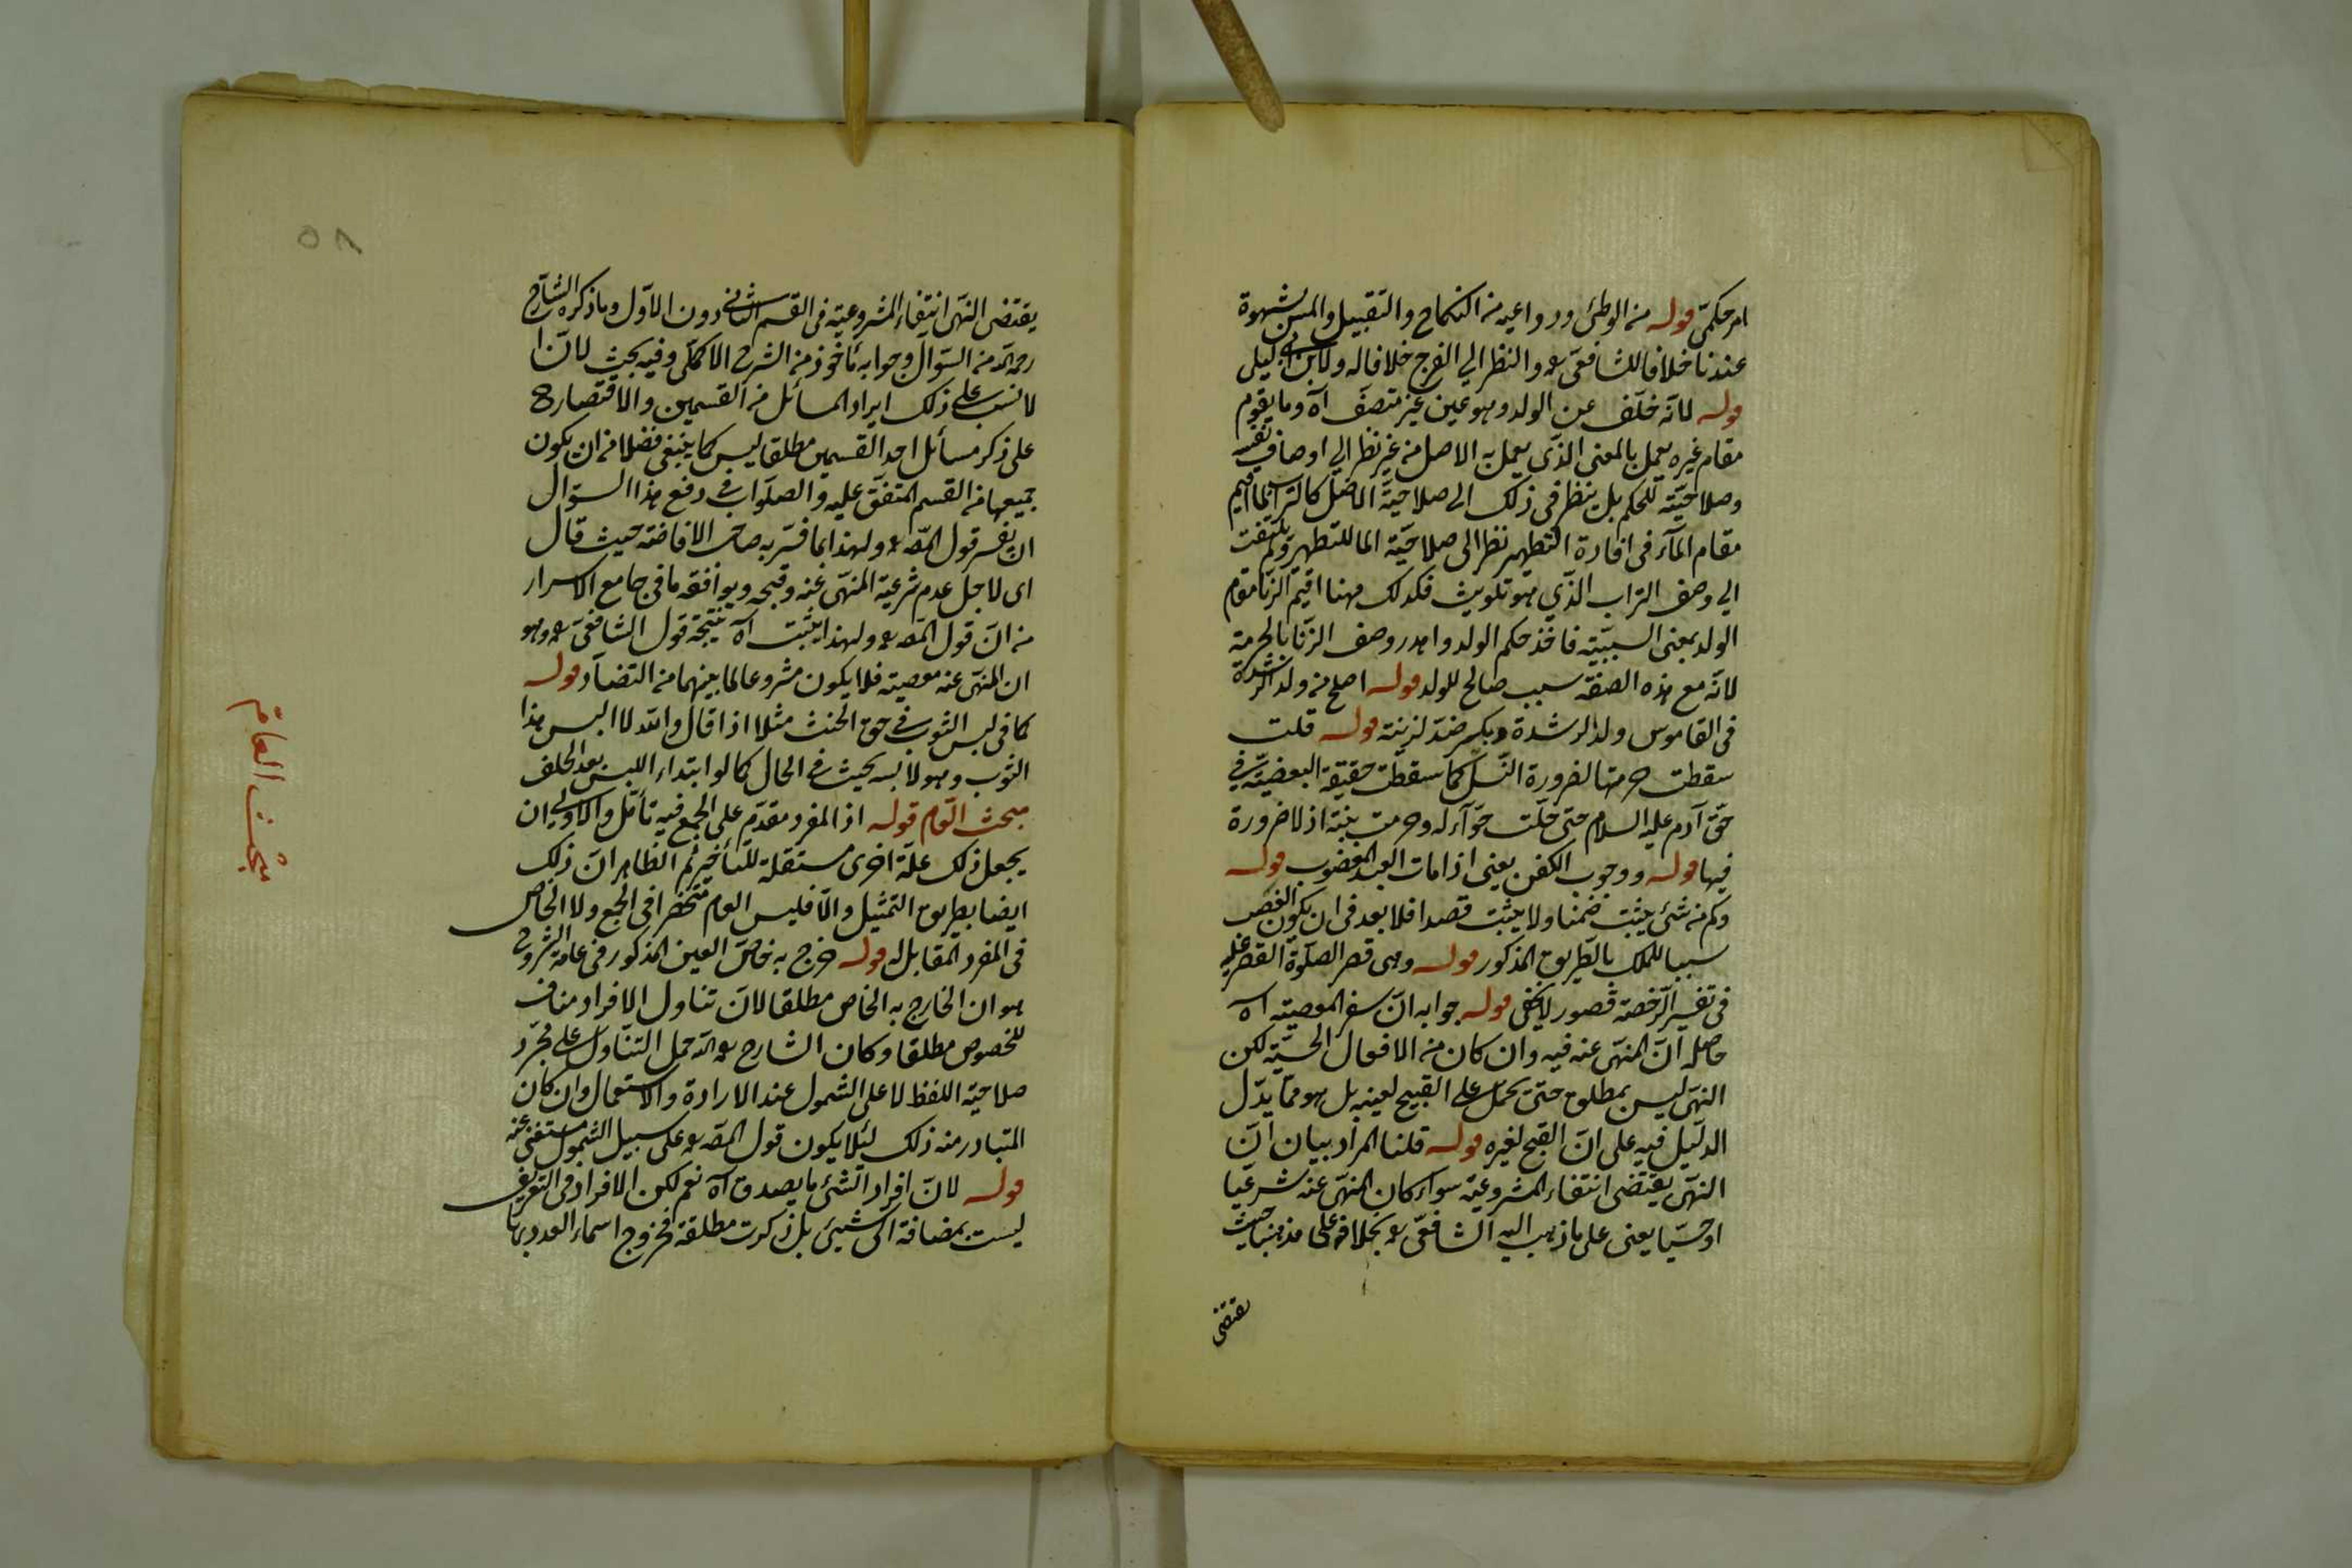 امر حكمىّ قوله من الوطئ ودواعيه من النكاح والتقبيل والمس بشهوة
عندنا خلافا للشافعىّ رح والنظر الي الفرج خلافا له ولابن ابى ليلى
قوله لانّه خلف عن الولد وهو عين غير متصف آه وما يقوم
مقام غيره يعمل بالمعنى الذّى يعمل به الاصل من غير نظر الي اوصاف نفسه
وصلاحيّته للحكم بل ينظر فى ذلك الى صلاحيّة الاصل كالتراب لما اقيم
مقام المآء فى افادة التطهير نظر الى صلاحيّة الما للتطهير ولم يلتفت
الي وصف التراب الذّي هو تلويث فكذلك ههنا اقيم الزّنا مقام
الولد بمعنى السببيّة فاخذ حكم الولد واهدر وصف الزّنا بالحرمة
لانّه مع هذه الصفّة سبب صالح للولد قوله اصلح من ولد الرشدة
فى القاموس ولد الرشدة ويكسر ضدّ لزنية قوله قلت
سقطت حرمتها لضرورة النّسل كما سقطت حقيقة البعضيّة فى
حقّ آدم عليه السلام حتى حلّت حوّآء له وحرمت بنته اذ لا ضرورة
فيها قوله ووجوب الكفن يعنى اذا مات العبد المغصوب قوله
وكم من شئ يثبت ضمنا ولا يثبت قصدا فلا بعد فى ان يكون الغصب
سببا للملك بالطّريق المذكور قوله وهى قصر الصلّوة القصر عليه
فى تفسير الرّخصة قصور لا يخفى قوله جوابه انّ سفر المعصية آه
حاصله انّ المنهّى عنه فيه وان كان من الافعال الحسيّة لكن
النهّى ليس بمطلق حتىّ يحمل على القبيح لعينه بل هو ممّا يدّل
الدلّيل فيه على انّ القبح لغيره قوله قلنا المراد بيان انّ
النهّى يقتضى انتفاء المشروعيّة سواء كان المنهّى عنه شرعيّا
او حسيّا يعنى على ما ذهب اليه الشافعىّ رح بخلافه على مذهبنا حيث
يقتضى
٥٨
يقتضى النهّى انتفاء المشروعيّة فى القسم الثانى دون الاوّل وما ذكره الشارح
رحمه الله من السّوال وجوابه مأخوذ من الشرح الاكملى وفيه بحث لانّ
لا نسب على ذلك ايراد المسائل من القسمين والاقتصار
على ذكر مسائل احد القسمين مطلقا ليس كما ينبغى فضلا من ان يكون
جميعها من القسم المتفّق عليه والصوّاب فى دفع هذا السوّال
ان يفسر قول المصّ رح ولهذا بما فسّر به صاحب الافاضة حيث قال
اى لاجل عدم شرعيّة المنهّى عنه وقبحه ويوافقه ما فى جامع الاسرار
من انّ قول المصّ رح ولهذا يثبت آه نتيجة قول الشافعىّ رح وهو
ان المنهّى عنه معصية فلا يكون مشروعا لما بينهما من التضادّ قوله
كما فى لبس الثوب فى حق الحنث مثلا اذا قال والله لا البس هذا
الثوب وهو لابسه يحيث فى الحال كما لو ابتداء اللبس بعد الحلف
مبحث العام قوله اذ المفرد مقدّم على الجمع فيه تأمّل والاولى ان
يجعل ذلك علّة اخرى مستقلة للتأخير ثم الظاهر انّ ذلك
ايضا بطريق التمثيل والاّ فليس العام منحصرا فى الجمع ولا الخاصّ
فى المفرد المقابل له قوله خرج به خاصّ العين المذكور فى عامة الشروح
هو ان الخارج به الخاص مطلقا لانّ تناول الافراد مناف
للخصوص مطلقا وكان الشارح رحمه الله حمل التناول على مجرّد
صلاحيّة اللفظ لا على الشمول عند الارادة والاستعمال وان كان
المتبادر منه ذلك لئلا يكون قول المصّ رح على سبيل الشمول مستغنى عنه
قوله لانّ افراد الشئ ما يصدق آه نعم لكن الافراد فى التعريف
ليست بمضافة الى شيئ بل ذكرت مطلقة فخروج اسماء العدد بها
مبحث العام